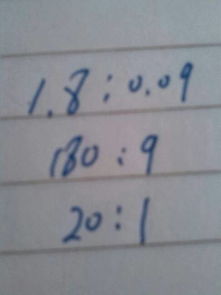 1.8 : 0.09
180 : 9
20 : 1